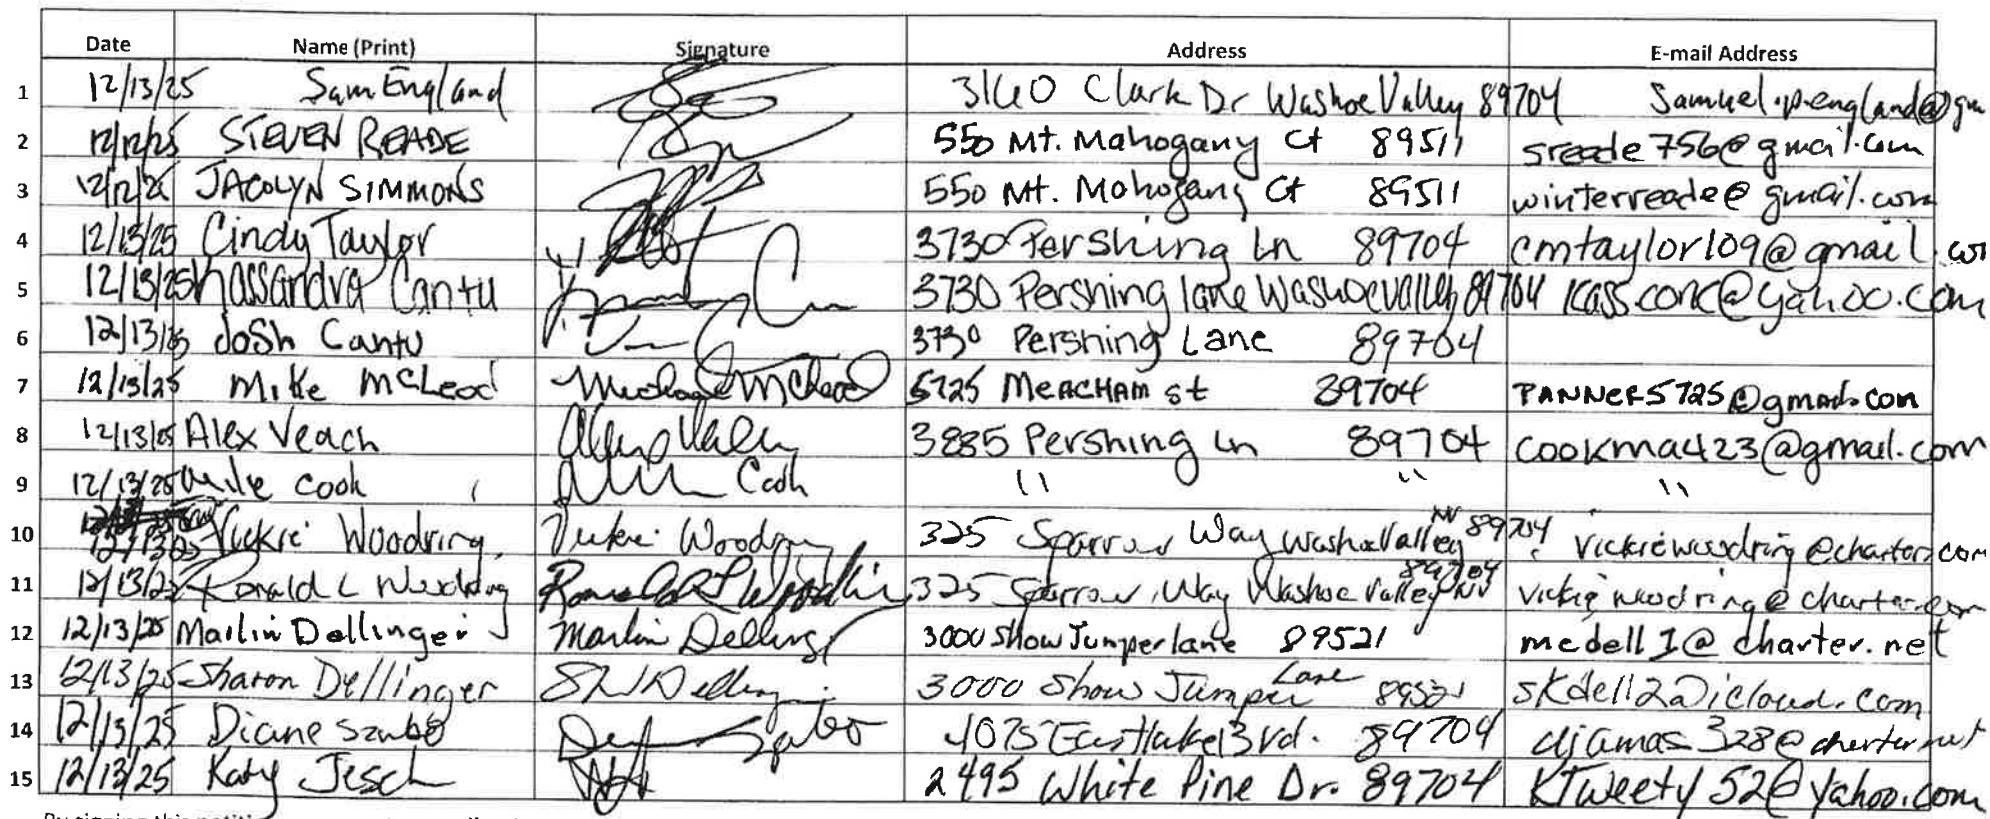 Date Name (Print) Signature Address E-mail Address
1 12/13/25 Sam England 3160 Clark Dr Washoe Valley 89704 Samuel.p.england@gm
2 12/12/25 STEVEN READE 550 Mt. Mahogany Ct 89511 sreade756@gmail.com
3 12/12/25 JACOLYN SIMMONS 550 Mt. Mahogany Ct 89511 winterreade@gmail.com
4 12/13/25 Cindy Taylor 3730 Pershing Ln 89704 cmtaylor109@gmail.co
5 12/13/25 Kassandra Cantu 3730 Pershing lane Washoe valley 89704 kass.conc@yahoo.com
6 12/13/25 Josh Cantu 3730 Pershing Lane 89704
7 12/13/25 Mike McLeod Michael McLeod 5725 MEACHAM st 89704 TANNER5725@gmail.com
8 12/13/25 Alex Veach 3885 Pershing Ln 89704 cookma423@gmail.com
9 12/13/25 Mike Cook Cook " " "
10 12/13/25 Vickie Woodring Vickie Woodring 325 Sparrow Way Washoe Valley NV 89704 vickiewoodring@charter.com
11 12/13/25 Ronald L Woodring Ronald L Woodring 325 Sparrow Way Washoe Valley NV 89704 vickiewoodring@charter.com
12 12/13/25 Marlin Dellinger Marlin Dellinger 3000 Show Jumper lane 89521 medell1@charter.net
13 12/13/25 Sharon Dellinger 3000 Show Jumper Lane 89521 skdell2@icloud.com
14 12/13/25 Diane Szabo Szabo 4075 Eastlake Blvd. 89704 djamas328@charter.net
15 12/13/25 Katy Jesch 2495 White Pine Dr. 89704 KTweety52@yahoo.com